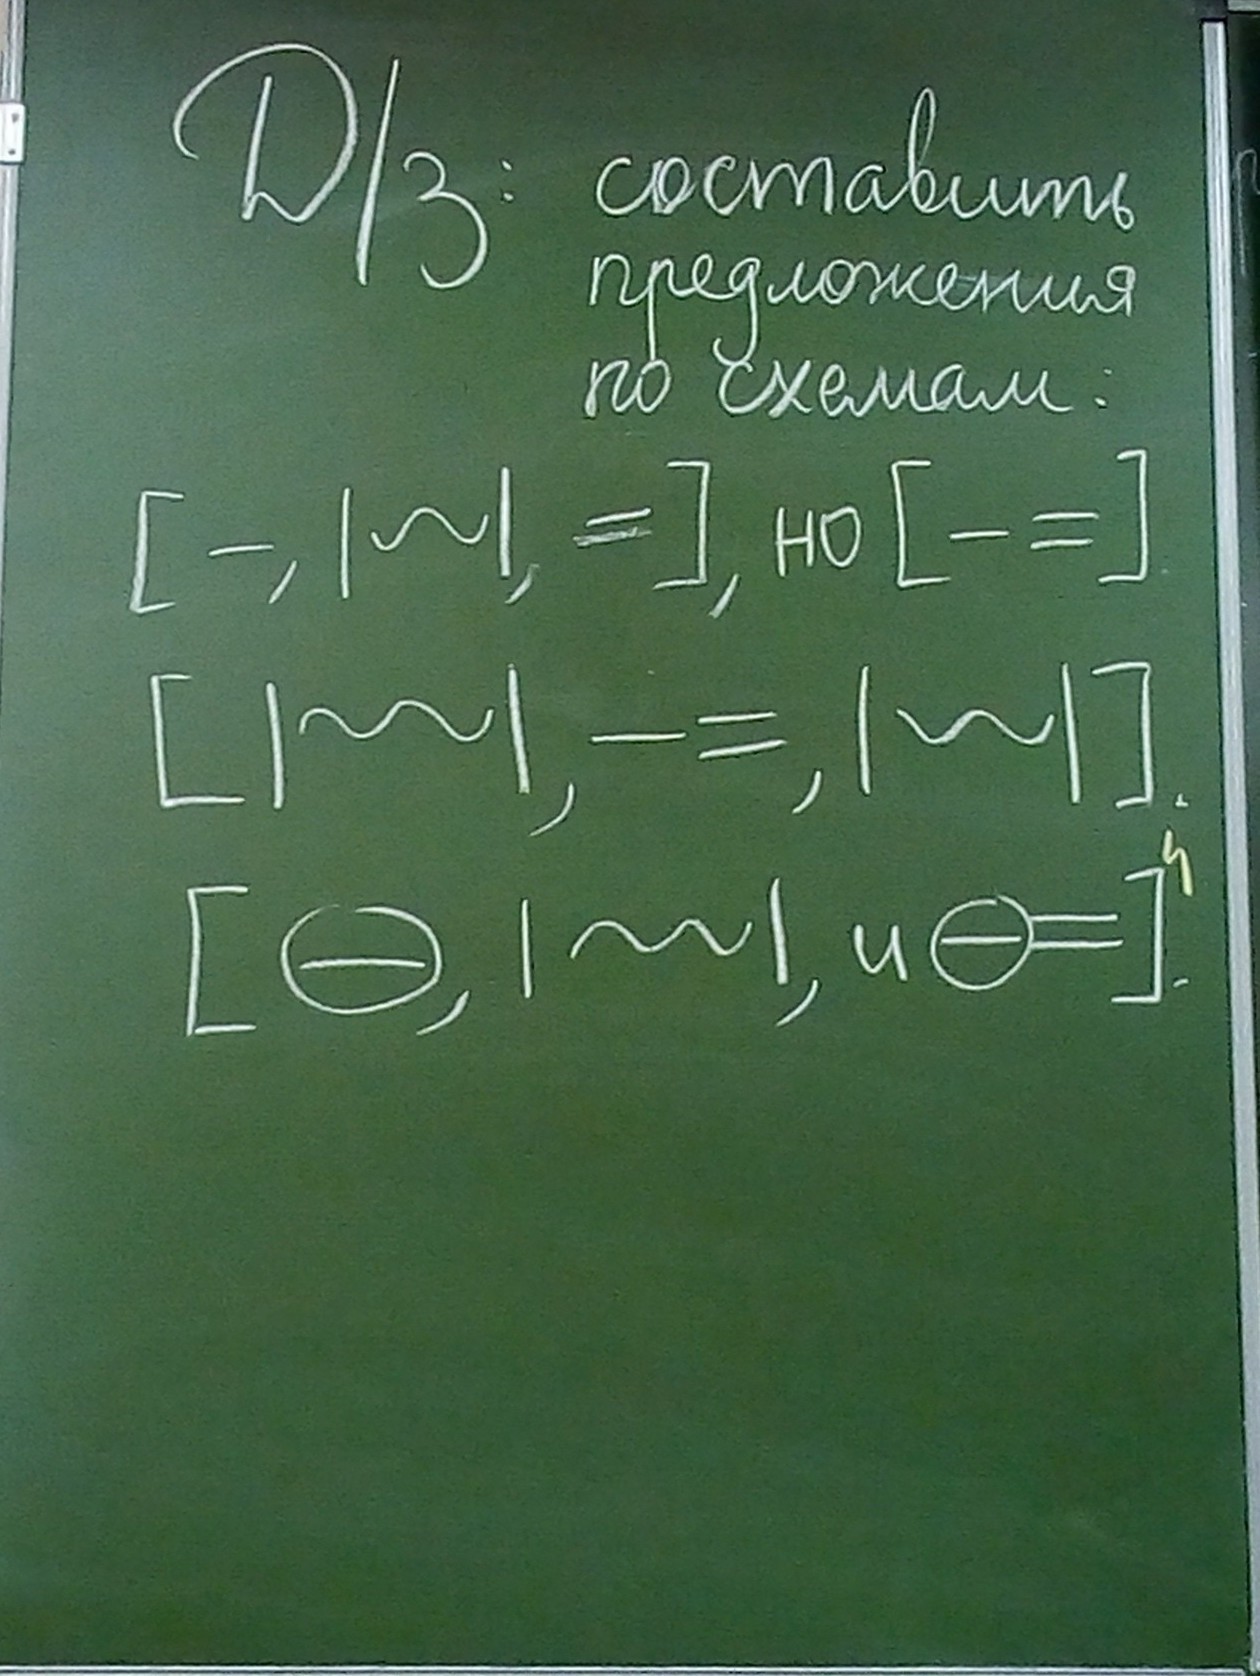 Д/з: составить
предложения
по схемам:
[ –, |~|, = ], но [ – = ].
[ |~~|, – =, |~| ].
[ ⊖, |~~|, и ⊖= ].